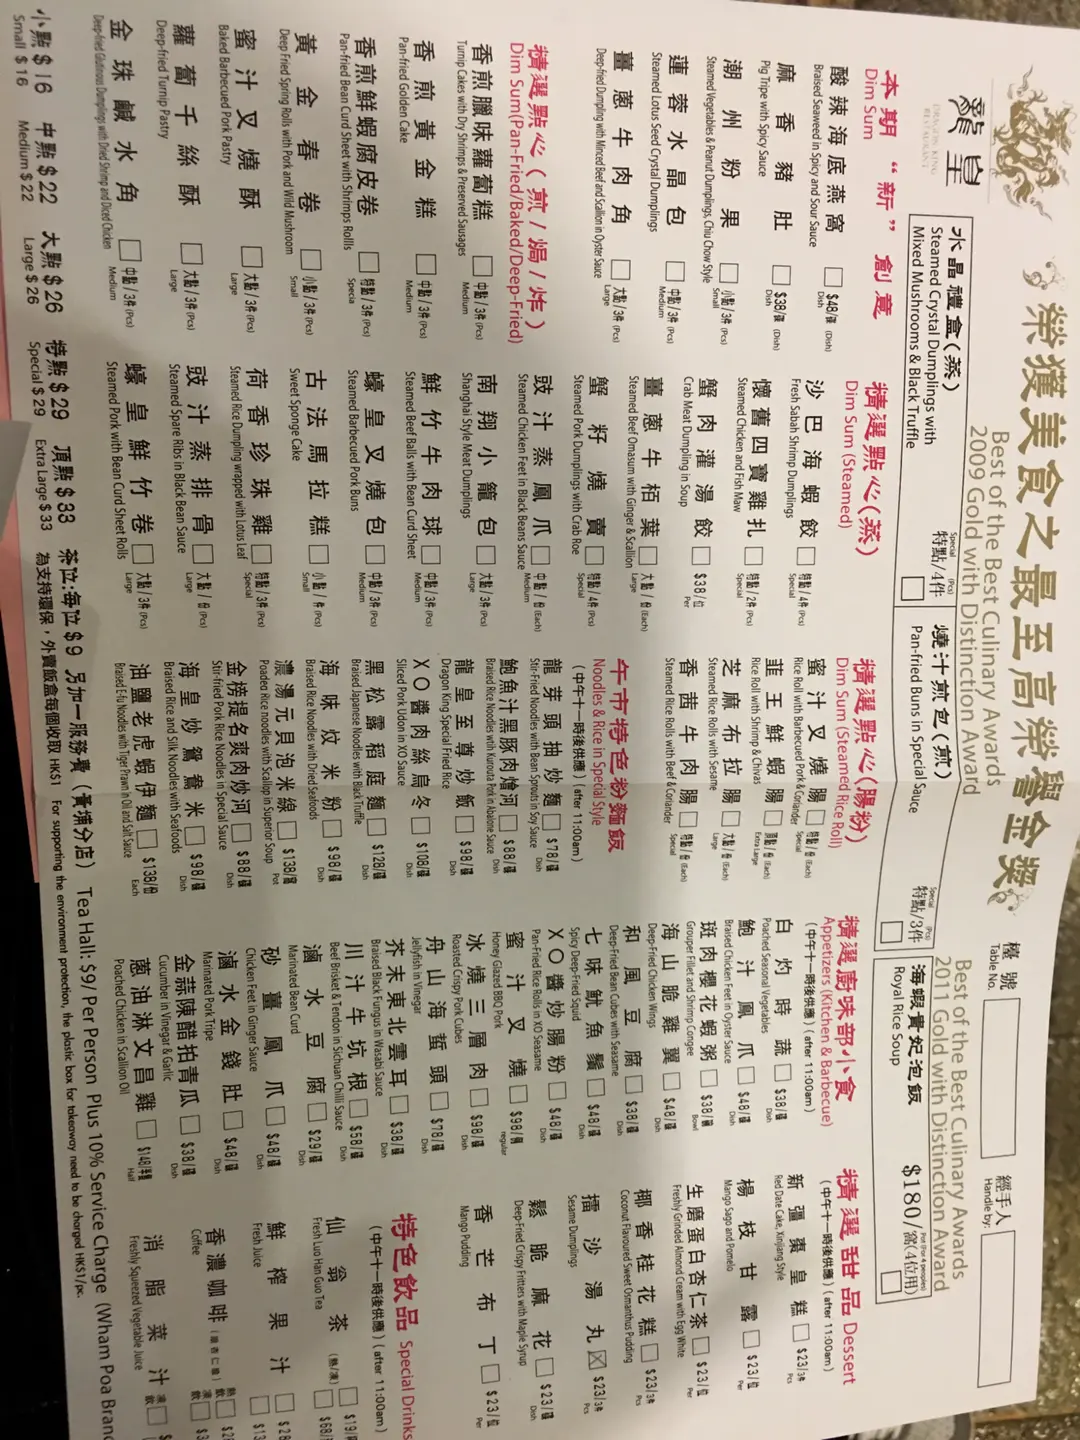 龍皇
DRAGON KING
RESTAURANT
榮獲美食之最至高榮譽金獎
Best of the Best Culinary Awards
2009 Gold with Distinction Award
Best of the Best Culinary Awards
2011 Gold with Distinction Award
檯號
Table No.
經手人
Handle by:
水晶禮盒(蒸)
Steamed Crystal Dumplings with
Mixed Mushrooms & Black Truffle
Special (Pcs)
特點/4件
燒汁煎包(煎)
Pan-fried Buns in Special Sauce
Special (Pcs)
特點/3件
海蝦貴妃泡飯
Royal Rice Soup
$180/窩(4位用)
Pot (For 4 peoples)
本期“新”創意
Dim Sum
酸辣海底燕窩 $48/碟 (Dish)
Braised Seaweed in Spicy and Sour Sauce Dish
麻香豬肚 $38/碟 (Dish)
Pig Tripe with Spicy Sauce Dish
潮州粉果 小點/3件 (Pcs)
Steamed Vegetables & Peanut Dumplings, Chiu Chow Style Small
蓮蓉水晶包 中點/3件 (Pcs)
Steamed Lotus Seed Crystal Dumplings Medium
薑蔥牛肉角 大點/3件 (Pcs)
Deep-fried Dumpling with Minced Beef and Scallion in Oyster Sauce Large
精選點心(煎/焗/炸)
Dim Sum(Pan-Fried/Baked/Deep-Fried)
香煎臘味蘿蔔糕 中點/3件 (Pcs)
Turnip Cakes with Dry Shrimps & Preserved Sausages Medium
香煎黃金糕 中點/3件 (Pcs)
Pan-fried Golden Cake Medium
香煎鮮蝦腐皮卷 特點/3件 (Pcs)
Pan-fried Bean Curd Sheet with Shrimps Rolls Specia
黃金春卷 小點/3件 (Pcs)
Deep Fried Spring Roll with Pork and Wild Mushroom Small
蜜汁叉燒酥 大點/3件 (Pcs)
Baked Barbecued Pork Pastry Large
蘿蔔千絲酥 大點/3件 (Pcs)
Deep-fried Turnip Pastry Large
金珠鹹水角 中點/3件 (Pcs)
Deep-fried Glutinous Dumplings with Dried Shrimp and Diced Chicken Medium
精選點心(蒸)
Dim Sum (Steamed)
沙巴海蝦餃 特點/4件 (Pcs)
Fresh Sabah Shrimp Dumplings Special
懷舊四寶雞扎 特點/2件 (Pcs)
Steamed Chicken and Fish Maw Special
蟹肉灌湯餃 $38/位
Crab Meat Dumpling in Soup Per
薑蔥牛栢葉 大點/份 (Each)
Steamed Beef Omasum with Ginger & Scallion Large
蟹籽燒賣 特點/4件 (Pcs)
Steamed Pork Dumplings with Crab Roe Special
豉汁蒸鳳爪 中點/份 (Each)
Steamed Chicken Feet in Black Beans Sauce Medium
南翔小籠包 大點/3件 (Pcs)
Shanghai Style Meat Dumplings Large
鮮竹牛肉球 中點/3件 (Pcs)
Steamed Beef Balls with Bean Curd Sheet Medium
蠔皇叉燒包 中點/3件 (Pcs)
Steamed Barbecued Pork Buns Medium
古法馬拉糕 小點/件 (Pcs)
Sweet Sponge Cake Small
荷香珍珠雞 特點/3件 (Pcs)
Steamed Rice Dumpling wrapped with Lotus Leaf Special
豉汁蒸排骨 大點/份 (Pcs)
Steamed Spare Ribs in Black Bean Sauce Large
蠔皇鮮竹卷 大點/3件 (Pcs)
Steamed Pork with Bean Curd Sheet Rolls Large
精選點心(腸粉)
Dim Sum (Steamed Rice Roll)
蜜汁叉燒腸 特點/份 (Each)
Rice Roll with Barbecued Pork & Coriander Special
韮王鮮蝦腸 頂點/份 (Each)
Rice Roll with Shrimp & Chivas Extra Large
芝麻布拉腸 大點/份 (Each)
Steamed Rice Rolls with Sesame Large
香茜牛肉腸 特點/份 (Each)
Steamed Rice Rolls with Beef & Coriander Special
午市特色粉麵飯
Noodles & Rice in Special Style
(中午十一時後供應) (after 11:00am)
龍芽頭抽炒麵 $78/碟
Stir-Fried Noodles with Bean Sprouts in Soy Sauce Dish
鮑魚汁黑豚肉燴河 $88/碟
Braised Rice Noodles with Kurouta Pork in Abalone Sauce Dish
龍皇至尊炒飯 $98/碟
Dragon King Special Fried Rice Dish
XO醬肉絲烏冬 $108/碟
Sliced Pork Udon in XO Sauce Dish
黑松露稻庭麵 $128/碟
Braised Japanese Noodles with Black Truffle Dish
海味炆米粉 $98/碟
Braised Rice Noodles with Dried Seafoods Dish
濃湯元貝泡米線 $138/窩
Poaded Rice noodles with Scallop in Superior Soup Pot
金榜提名爽肉炒河 $88/碟
Stir-fried Pork Rice Noodles in Special Sauce Dish
海皇炒鴛鴦米 $98/碟
Braised Rice and Silk Noodles with Seafoods Dish
油鹽老虎蝦伊麵 $138/份
Braised E-fu Noodles with Tiger Prawn in Oil and Salt Sauce Each
精選廚味部小食
Appetizers (Kitchen & Barbecue)
(中午十一時後供應) (after 11:00am)
白灼時蔬 $38/碟
Poached Seasonal Vegetables Dish
鮑汁鳳爪 $48/碟
Braised Chicken Feet in Oyster Sauce Dish
斑肉櫻花蝦粥 $38/碗
Grouper Fillet and Shrimp Congee Bowl
海山脆雞翼 $48/碟
Deep-Fried Chicken Wings Dish
和風豆腐 $38/碟
Deep-Fried Bean Cubes with Seasame Dish
七味魷魚鬚 $48/碟
Spicy Deep-Fried Squid Dish
XO醬炒腸粉 $48/碟
Pan-Fried Rice Rolls in XO Seasame Dish
蜜汁叉燒 $98/例
Honey Glazed BBQ Pork regular
冰燒三層肉 $98/碟
Roasted Crispy Pork Cubes Dish
舟山海蜇頭 $78/碟
Jellyfish in Vinegar Dish
芥末東北雲耳 $38/碟
Braised Black Fungus in Wasabi Sauce Dish
川汁牛坑根 $58/碟
Beef Brisket & Tendon in Sichuan Chilli Sauce Dish
滷水豆腐 $29/碟
Marinated Bean Curd Dish
砂薑鳳爪 $48/碟
Chicken Feet in Ginger Sauce Dish
滷水金錢肚 $48/碟
Marinated Pork Tripe Dish
金蒜陳醋拍青瓜 $38/碟
Cucumber in Vinegar & Garlic Dish
蔥油淋文昌雞 $148/半隻
Poached Chicken in Scallion Oil Half
精選甜品 Dessert
(中午十一時後供應) (after 11:00am)
新疆棗皇糕 $23/3件
Red Date Cake, Xinjiang Style Pcs
楊枝甘露 $23/位
Mango Sago and Pomelo Per
生磨蛋白杏仁茶 $23/位
Freshly Grinded Almond Cream with Egg White Per
椰香桂花糕 $23/3件
Coconut Flavoured Sweet Osmanthus Pudding Pcs
擂沙湯丸 $23/3件
Sesame Dumplings Pcs
鬆脆麻花 $23/碟
Deep-Fried Crispy Fritters with Maple Syrup Dish
香芒布丁 $23/位
Mango Pudding Per
特色飲品 Special Drinks
(中午十一時後供應) (after 11:00am)
仙翁茶 (熱/凍) $19/
Fresh Luo Han Guo Tea $68/
鮮榨果汁 $28
Fresh Juice $13
香濃咖啡 熱飲 $2
Coffee 凍飲 $3
消脂菜汁 凍飲 $
Freshly Squeezed Vegetable Juice
小點$16 中點$22 大點$26 特點$29 頂點$33 茶位:每位$9 另加一服務費 (黃埔分店) Tea Hall: $9/ Per Person Plus 10% Service Charge (Wham Poa Branc
Small $16 Medium $22 Large $26 Special $29 Extra Large $33 為支持環保,外賣飯盒每個收取HK$1 For supporting the environment protection, the plastic box for takeaway need to be charged HK$1/pc.